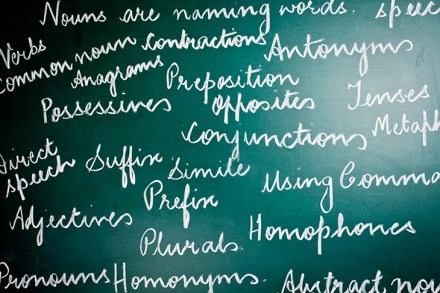 Nouns are naming words. speec
Verbs
Common noun Contractions
Antonyms
Anagrams
Preposition
Possessives
Opposites
Tenses
Conjunctions
Metaph
Direct
speech
Suffix
Simile
Using Comma
Prefix
Adjectives
Plurals
Homophones
Pronouns Homonyms.
Abstract nou